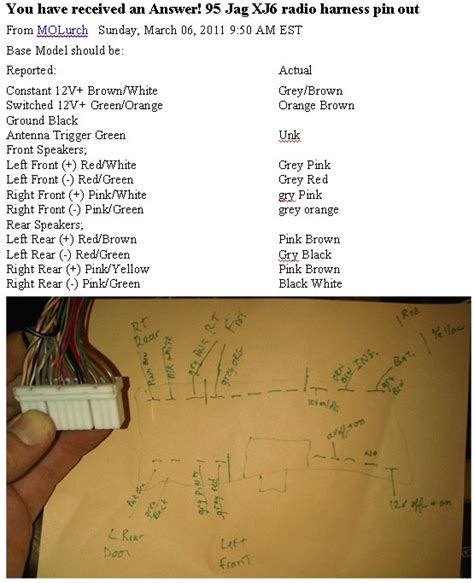 You have received an Answer! 95 Jag XJ6 radio harness pin out
From MOLurch Sunday, March 06, 2011 9:50 AM EST
Base Model should be:
Reported: Actual
Constant 12V+ Brown/White Grey/Brown
Switched 12V+ Green/Orange Orange Brown
Ground Black
Antenna Trigger Green Unk
Front Speakers;
Left Front (+) Red/White Grey Pink
Left Front (-) Red/Green Grey Red
Right Front (+) Pink/White gry Pink
Right Front (-) Pink/Green grey orange
Rear Speakers;
Left Rear (+) Red/Brown Pink Brown
Left Rear (-) Red/Green Gry Black
Right Rear (+) Pink/Yellow Pink Brown
Right Rear (-) Pink/Green Black White
RT
Rear
RT
Red
Yellow
Pink Brn
Blk white
gry Pink
gry org
Bat.
gry Pink
gry red
12v off + on
L Rear
Door
Left
front